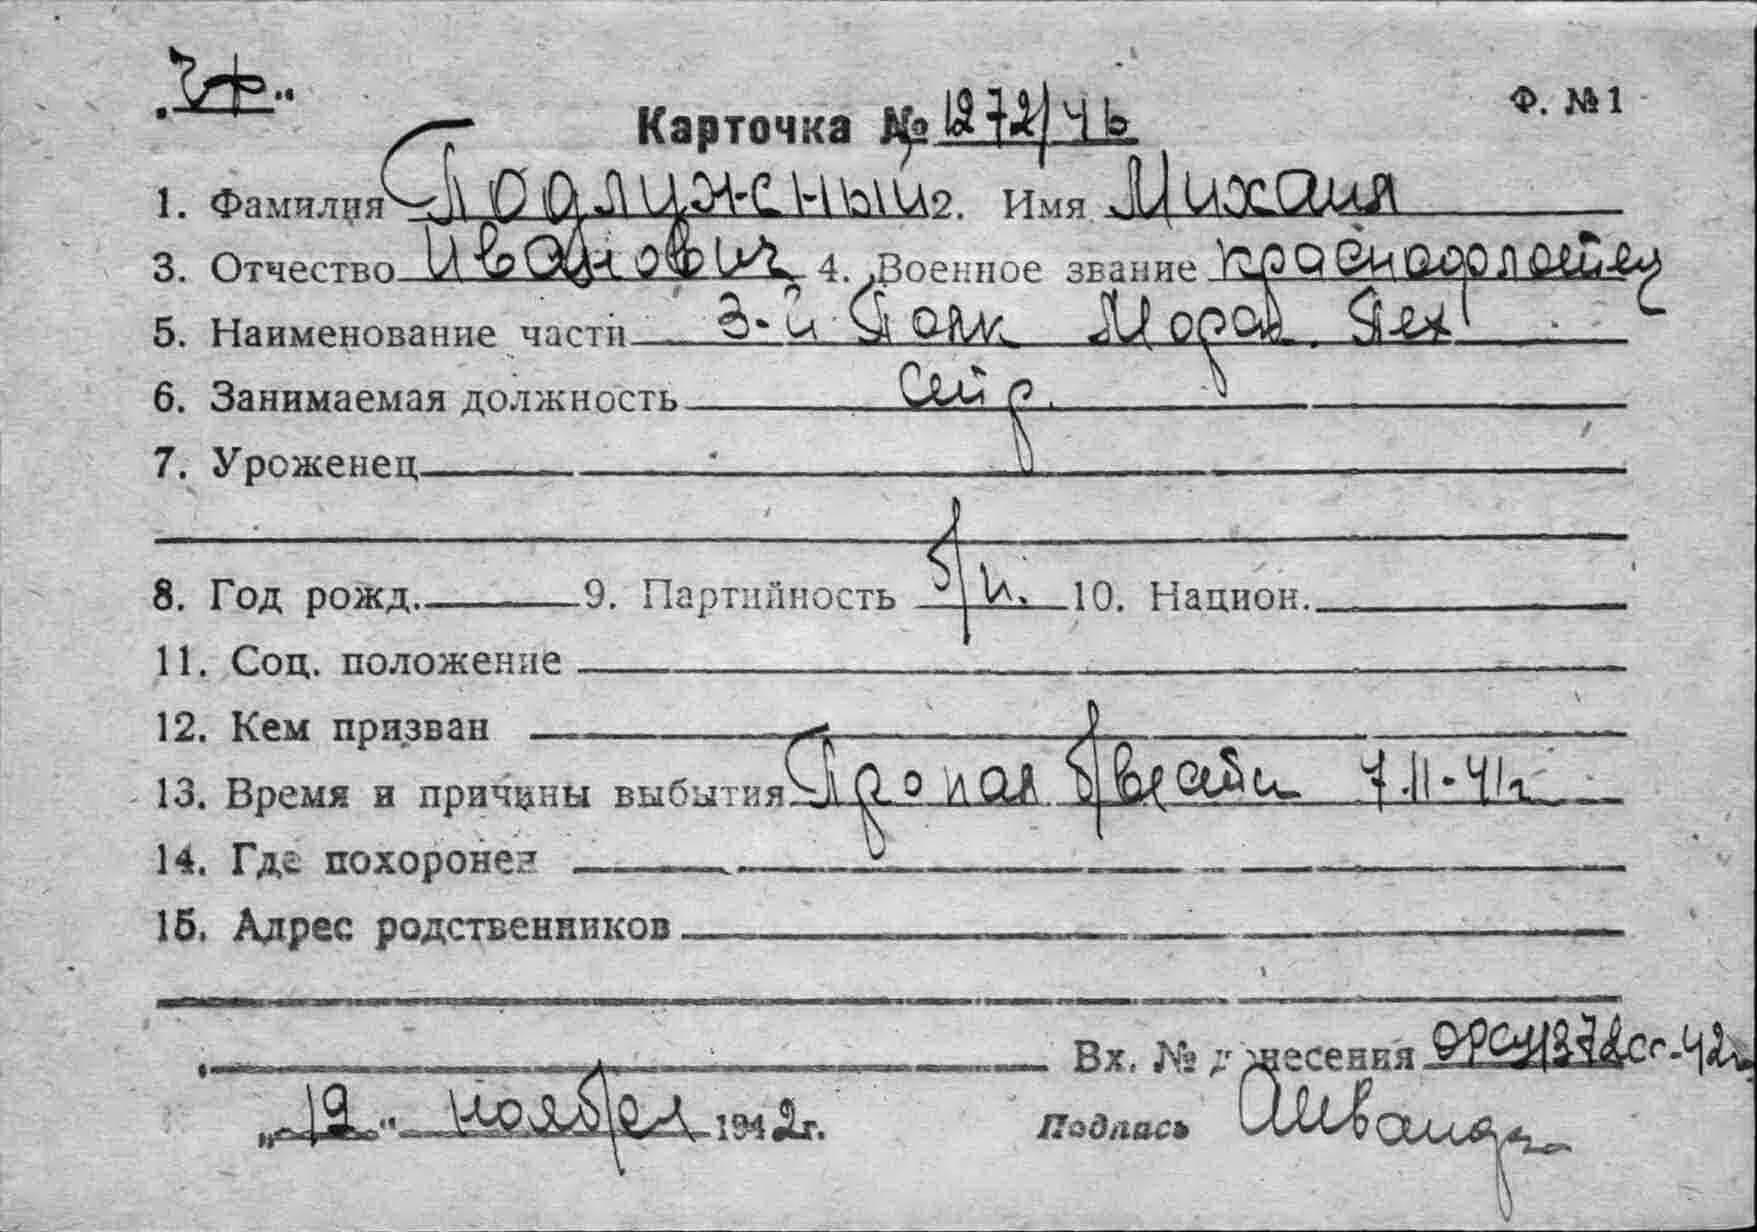 "Чф"
Ф. № 1
Карточка № 1272/46
1. Фамилия Подлужный 2. Имя Михаил
3. Отчество Иванович 4. Военное звание краснофлотец
5. Наименование части 3-й Полк Морск. Пех
6. Занимаемая должность
7. Уроженец
8. Год рожд. 9. Партийность б/п. 10. Национ.
11. Соц. положение
12. Кем призван
13. Время и причины выбытия Пропал б/вести 7.11-41г
14. Где похоронен
15. Адрес родственников
Вх. № донесения ОРСУ/372сс-42г
"19" ноября 1942г. Подпись